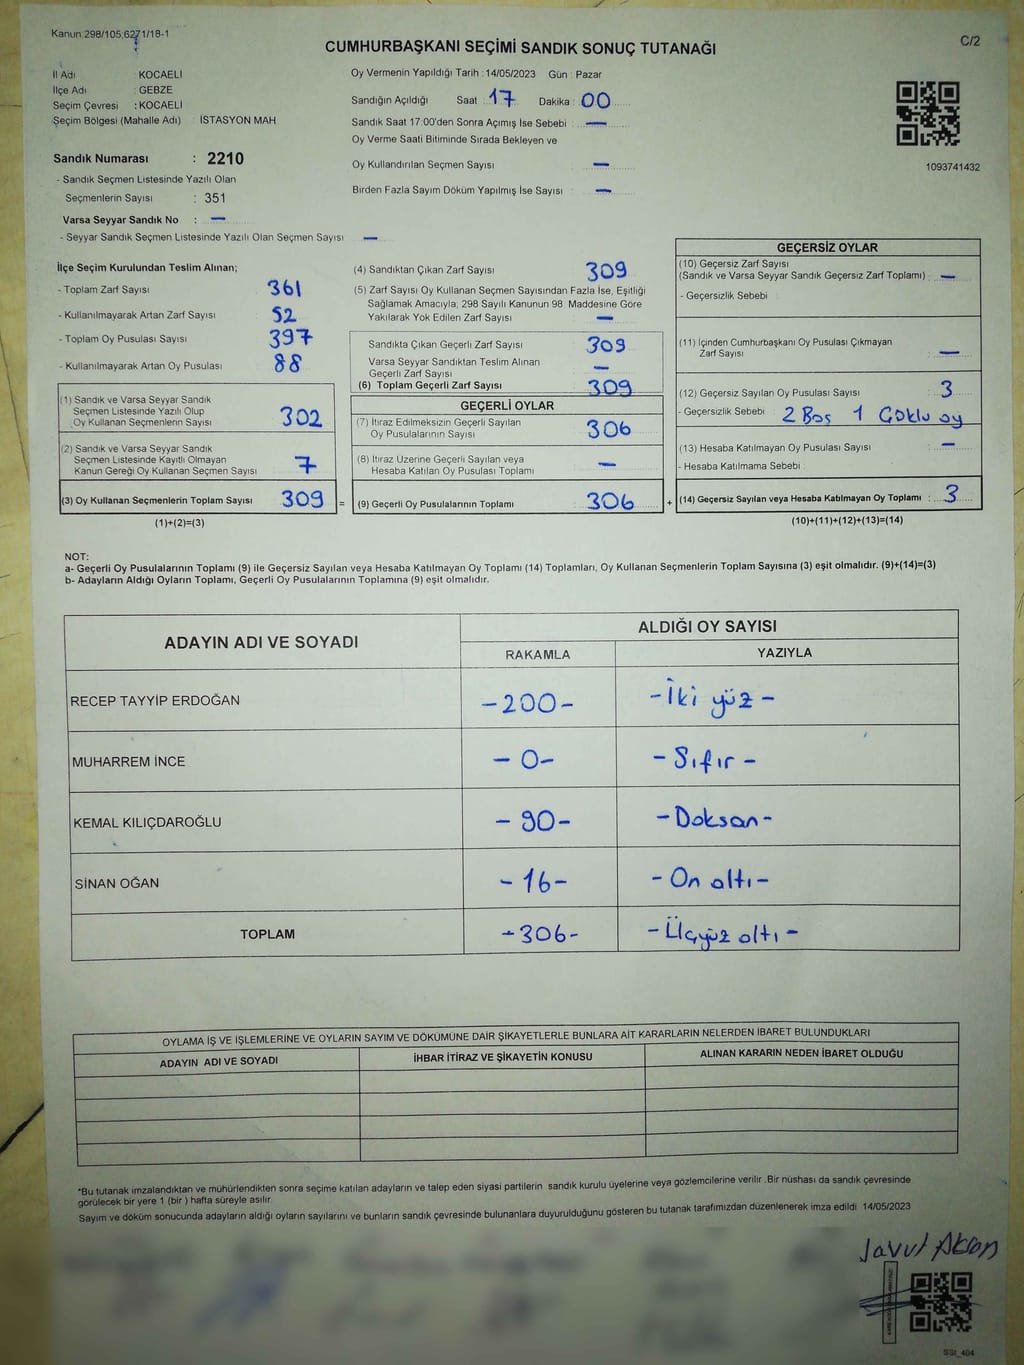 Kanun 298/105;6271/18-1
C/2
CUMHURBAŞKANI SEÇİMİ SANDIK SONUÇ TUTANAĞI
İl Adı : KOCAELİ
İlçe Adı : GEBZE
Seçim Çevresi : KOCAELİ
Seçim Bölgesi (Mahalle Adı) : İSTASYON MAH
Sandık Numarası : 2210
- Sandık Seçmen Listesinde Yazılı Olan
Seçmenlerin Sayısı : 351
Varsa Seyyar Sandık No : —
- Seyyar Sandık Seçmen Listesinde Yazılı Olan Seçmen Sayısı —
Oy Vermenin Yapıldığı Tarih : 14/05/2023 Gün : Pazar
Sandığın Açıldığı Saat : 17 Dakika : 00
Sandık Saat 17:00'den Sonra Açımış İse Sebebi : —
Oy Verme Saati Bitiminde Sırada Bekleyen ve
Oy Kullandırılan Seçmen Sayısı —
Birden Fazla Sayım Döküm Yapılmış İse Sayısı —
1093741432
İlçe Seçim Kurulundan Teslim Alınan;
- Toplam Zarf Sayısı 361
- Kullanılmayarak Artan Zarf Sayısı 52
- Toplam Oy Pusulası Sayısı 397
- Kullanılmayarak Artan Oy Pusulası 88
(1) Sandık ve Varsa Seyyar Sandık
Seçmen Listesinde Yazılı Olup
Oy Kullanan Seçmenlerin Sayısı 302
(2) Sandık ve Varsa Seyyar Sandık
Seçmen Listesinde Kayıtlı Olmayan
Kanun Gereği Oy Kullanan Seçmen Sayısı 7
(3) Oy Kullanan Seçmenlerin Toplam Sayısı 309 =
(1)+(2)=(3)
(4) Sandıktan Çıkan Zarf Sayısı 309
(5) Zarf Sayısı Oy Kullanan Seçmen Sayısından Fazla İse, Eşitliği
Sağlamak Amacıyla; 298 Sayılı Kanunun 98 Maddesine Göre
Yakılarak Yok Edilen Zarf Sayısı —
Sandıkta Çıkan Geçerli Zarf Sayısı 309
Varsa Seyyar Sandıktan Teslim Alınan
Geçerli Zarf Sayısı —
(6) Toplam Geçerli Zarf Sayısı 309
GEÇERLİ OYLAR
(7) İtiraz Edilmeksizin Geçerli Sayılan
Oy Pusulalarının Sayısı 306
(8) İtiraz Üzerine Geçerli Sayılan veya
Hesaba Katılan Oy Pusulası Toplamı —
(9) Geçerli Oy Pusulalarının Toplamı 306 +
GEÇERSİZ OYLAR
(10) Geçersiz Zarf Sayısı
(Sandık ve Varsa Seyyar Sandık Geçersiz Zarf Toplamı) : —
- Geçersizlik Sebebi
(11) İçinden Cumhurbaşkanı Oy Pusulası Çıkmayan
Zarf Sayısı : —
(12) Geçersiz Sayılan Oy Pusulası Sayısı 3
- Geçersizlik Sebebi 2 Boş 1 Çoklu oy
(13) Hesaba Katılmayan Oy Pusulası Sayısı —
- Hesaba Katılmama Sebebi :
(14) Geçersiz Sayılan veya Hesaba Katılmayan Oy Toplamı : 3
(10)+(11)+(12)+(13)=(14)
NOT:
a- Geçerli Oy Pusulalarının Toplamı (9) ile Geçersiz Sayılan veya Hesaba Katılmayan Oy Toplamı (14) Toplamları, Oy Kullanan Seçmenlerin Toplam Sayısına (3) eşit olmalıdır. (9)+(14)=(3)
b- Adayların Aldığı Oyların Toplamı, Geçerli Oy Pusulalarının Toplamına (9) eşit olmalıdır.
ADAYIN ADI VE SOYADI
ALDIĞI OY SAYISI
RAKAMLA YAZIYLA
RECEP TAYYİP ERDOĞAN -200- -İki yüz-
MUHARREM İNCE -0- -Sıfır-
KEMAL KILIÇDAROĞLU -90- -Doksan-
SİNAN OĞAN -16- -On altı-
TOPLAM -306- -Üçyüz altı-
OYLAMA İŞ VE İŞLEMLERİNE VE OYLARIN SAYIM VE DÖKÜMÜNE DAİR ŞİKAYETLERLE BUNLARA AİT KARARLARIN NELERDEN İBARET BULUNDUKLARI
ADAYIN ADI VE SOYADI İHBAR İTİRAZ VE ŞİKAYETİN KONUSU ALINAN KARARIN NEDEN İBARET OLDUĞU
*Bu tutanak imzalandıktan ve mühürlendikten sonra seçime katılan adayların ve talep eden siyasi partilerin sandık kurulu üyelerine veya gözlemcilerine verilir .Bir nüshası da sandık çevresinde
görülecek bir yere 1 (bir ) hafta süreyle asılır.
Sayım ve döküm sonucunda adayların aldığı oyların sayılarını ve bunların sandık çevresinde bulunanlara duyurulduğunu gösteren bu tutanak tarafımızdan düzenlenerek imza edildi 14/05/2023
SSI_404